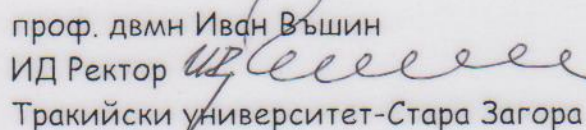 проф. двмн Иван Въшин
ИД Ректор
Тракийски университет-Стара Загора